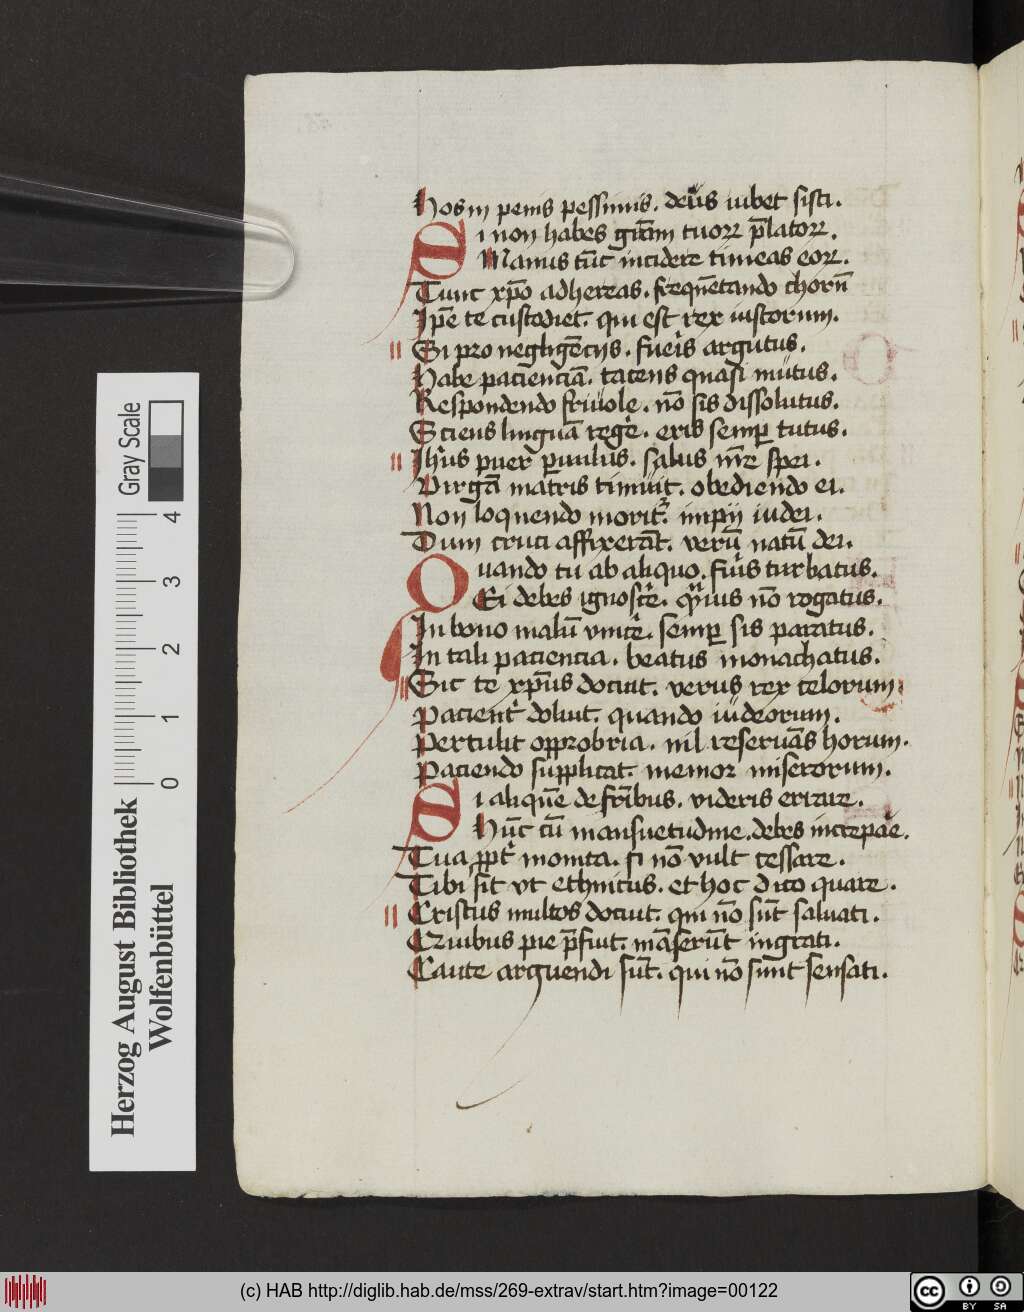 Hos in penis pessimis. deus iubet sisti.
Si non habes gr̃am tuoꝝ p̃latoꝝ.
Manus tũc incidere timeas eoꝝ.
Tunc xp̃o adhereas. frequẽtando chorũ
Ip̃e te custodiet. qui est rex iustorum.
Si pro negligẽcijs. fueris argutus.
Habe pacienciã. tacens quasi mutus.
Respondendo friuole. nõ sis dissolutus.
Sciens linguã rege͛. eris semp̱ tutus.
Ihũs puer p̱uulus. salus nr̃e spei.
Virgã matris timuit. obediendo ei.
Non loquendo morit᷑. impij iudei.
Dum cruci affixerãt. verũ natũ dei.
Quando tu ab aliquo. fu͛is turbatus.
Ei debes ignosce͛. prius nõ rogatus.
In bono malũ vince͛. semp̱ sis paratus.
In tali paciencia. beatus monachatus.
Sic te xp̃us docuit. verus rex celorum
Pacient᷑ doluit. quando iudeorum.
Pertulit opprobria. nil reseruãs horum.
Paciendo supplicat. memor miserorum.
Si aliquẽ de fr̃ibus. videris errare.
Hũc cũ mansuetudine. debes increpa͛e.
Tua ꝓpt᷑ monita. si nõ vult cessare.
Tibi sit vt ethnicus. et hoc dico quare.
Cristus multos docuit. qui nõ sũt saluati.
Ciuibus pie p̃fuit. mãserũt ingrati.
Caute arguendi sũt. qui nõ sunt sensati.
Herzog August Bibliothek
Wolfenbüttel
Gray Scale
0 1 2 3 4
(c) HAB http://diglib.hab.de/mss/269-extrav/start.htm?image=00122
cc BY SA